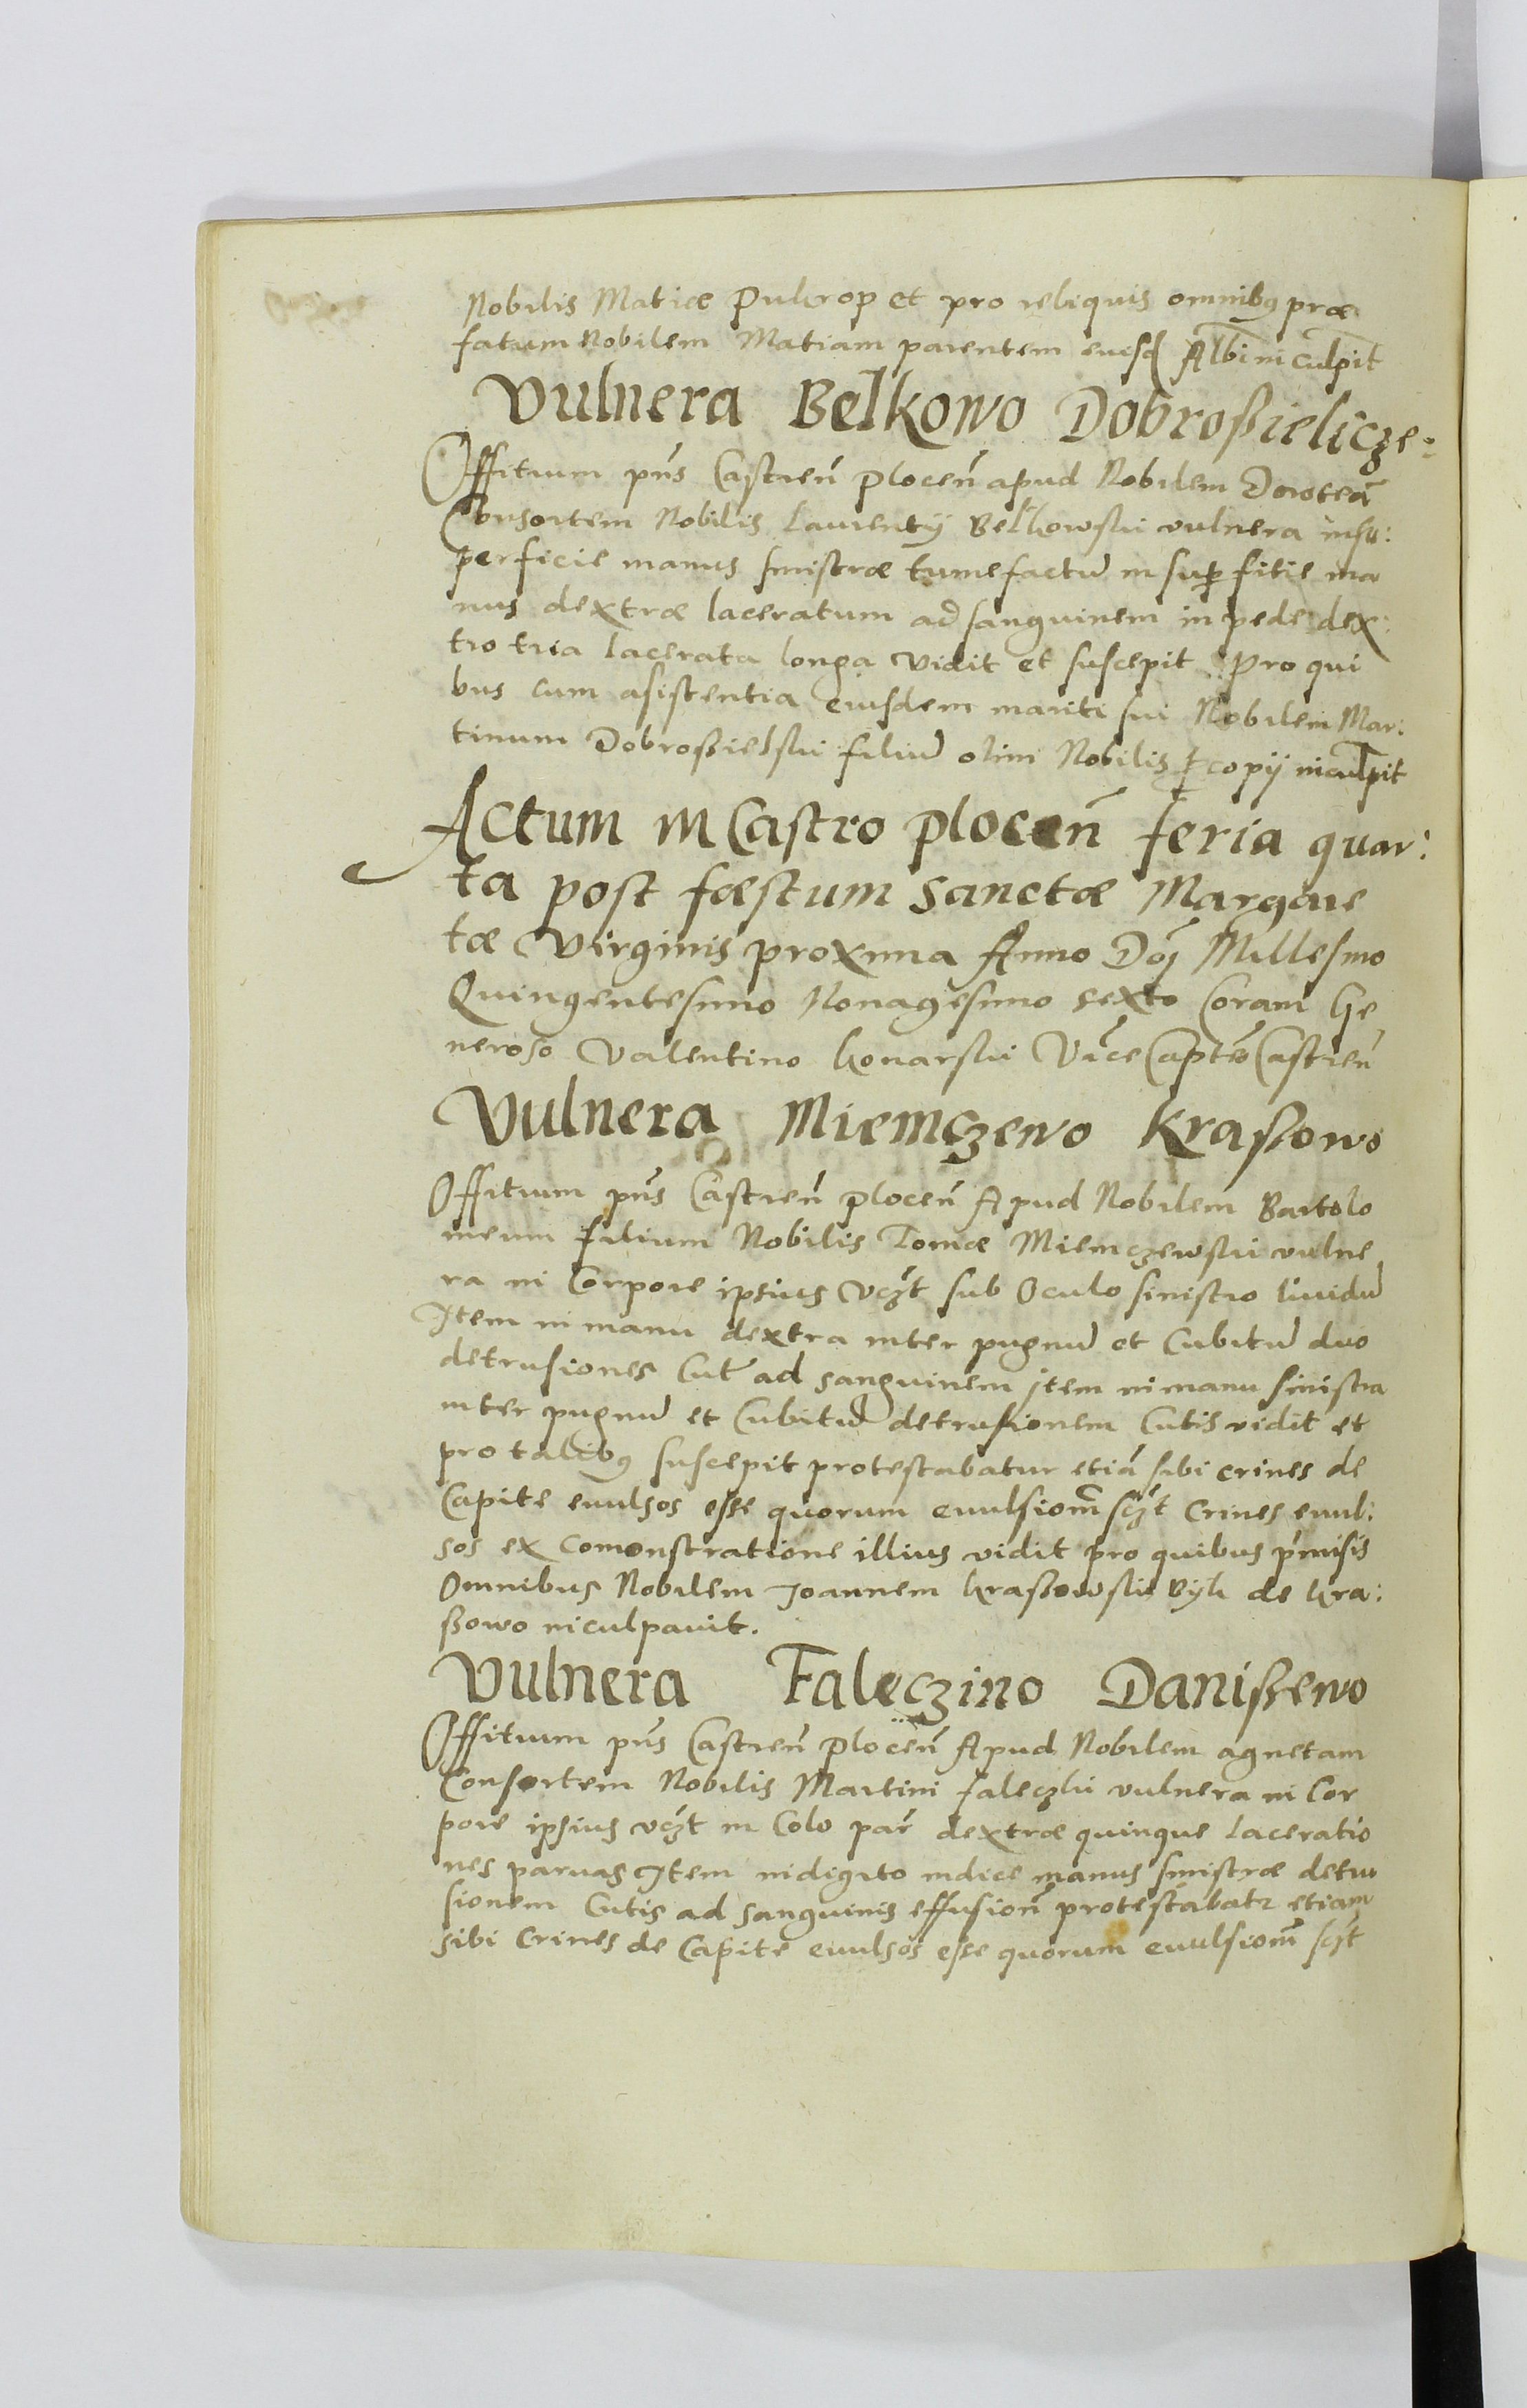 Nobilis Matiæ Pulkrop et pro reliquis omnibꝰ præ
fatum Nobilem Matiam parentem eiusd Albini inculpit
Vulnera Belkowo Dobroßielicze:
Offitium pn̄s Castren̄ Plocen̄ apud Nobilem Doroteā
Consortem Nobilis Laurentÿ Belkowski vulnera in su:
perficie manus sinistræ tumefactū in suꝑfitie ma
nus dextræ laceratum ad sanguinem in pede dex:
tro tria lacerata longa vidit et suscepit Pro qui
bus cum asistentia eiusdem mariti sui Nobilem Mar:
tinum Dobroßielski filiū olim Nobilis ꝓcopÿ inculpit
Actum in Castro Plocen̄ feria quar:
ta post fæstum Sanctæ Margare
tæ Virginis proxima Anno Dōj Millesmo
Quingentesimo Nonagesimo sexto Coram Ge
neroso Valentino Konarski Vice Captēo Castren̄
Vulnera Miemczewo Kraßowo
Offitium pn̄s Castren̄ Plocen̄ Apud Nobilem Bartolo
meum filium Nobilis Tomæ Miemczewski vulne
ra in Corpore ipsius vczt sub Oculo sinistro liuidū
Item in manu dextra inter pugnū et Cubitū duo
detrusiones Cut̄ ad sanguinem jtem in manu sinistra
inter pugnū et Cubitū detrusionem Cutis vidit et
pro talibꝰ suscepit protestabatur etiā sibi crines de
Capite euulsos esse quorum euulsiom̄ sczt Crines euul:
sos ex comonstratione illius vidit pro quibus p̄misis
Omnibus Nobilem Joannem Kraßowski Byk de Kra:
ßowo inculpauit.
Vulnera Faleczino Danißewo
Offitium pn̄s Castren̄ Plocen̄ Apud Nobilem agnetam
Consortem Nobilis Martini Faleczki vulnera in Cor
pore ipsius vczt in Colo par̄ dextræ quinque Laceratio
nes paruas Item in digito indice manus sinistræ detru
sionem Cutis ad sanguinis effusion̄ protestabatꝛ etiam
sibi Crines de Capite euulsos esse quorum euulsiom̄ sczt